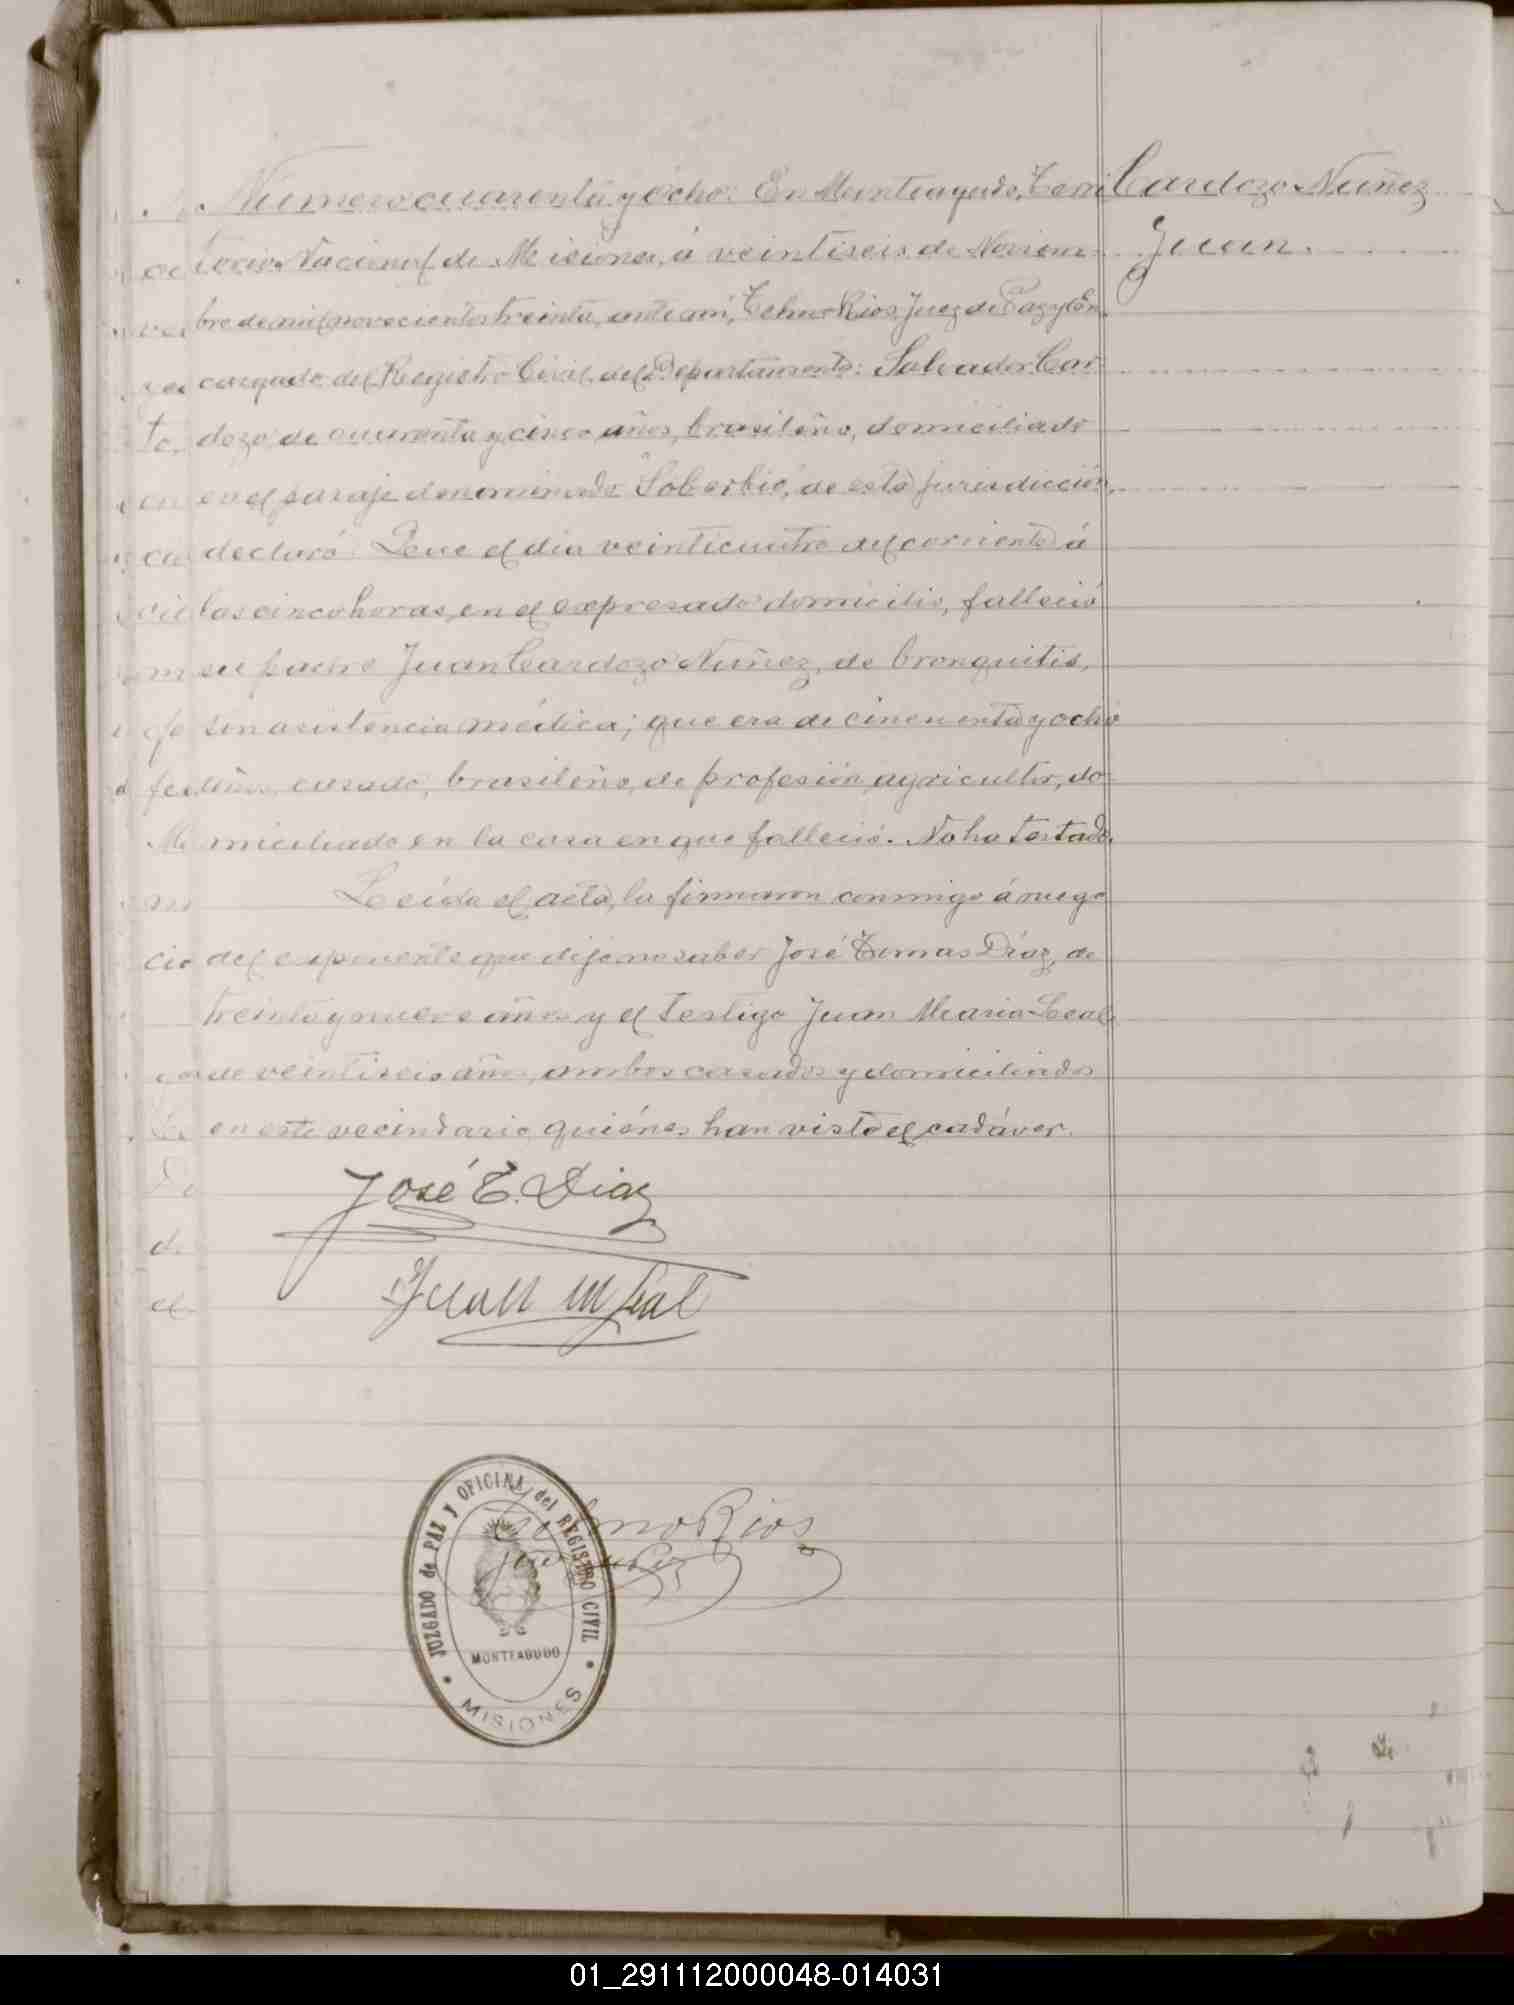 Número cuarenta y ocho: En Monteagudo, Terri
torio Nacional de Misiones, á veintiseis de Noviem-
bre de mil novecientos treinta, ante mi, Telmo Rios, Juez de Paz y En
cargado del Registro Civil del Departamento: Salvador Car-
dozo de cuarenta y cinco años, brasileño, domiciliado
en el paraje denominado Soberbio, de esta jurisdicción,
declaró: Que el día veinticuatro del corriente á
las cinco horas, en el expresado domicilio, falleció
su padre Juan Cardozo Nuñez, de bronquitis,
sin asistencia médica; que era de cincuenta y ocho
años, casado, brasileño, de profesión agricultor, do-
miciliado en la casa en que falleció. No ha testado.
Leída el acta, la firmaron conmigo á ruego
del exponente que dijo no saber José Tomas Díaz, de
treinta y nueve años y el testigo Juan Maria Leal
de veintiseis años, ambos casados y domiciliados
en este vecindario quiénes han visto el cadáver.
Cardozo Nuñez
Juan.
José T. Diaz
Juan M Leal
Telmo Rios
JUZGADO de PAZ Y OFICINA del REGISTRO CIVIL
MONTEAGUDO
MISIONES
01_291112000048-014031